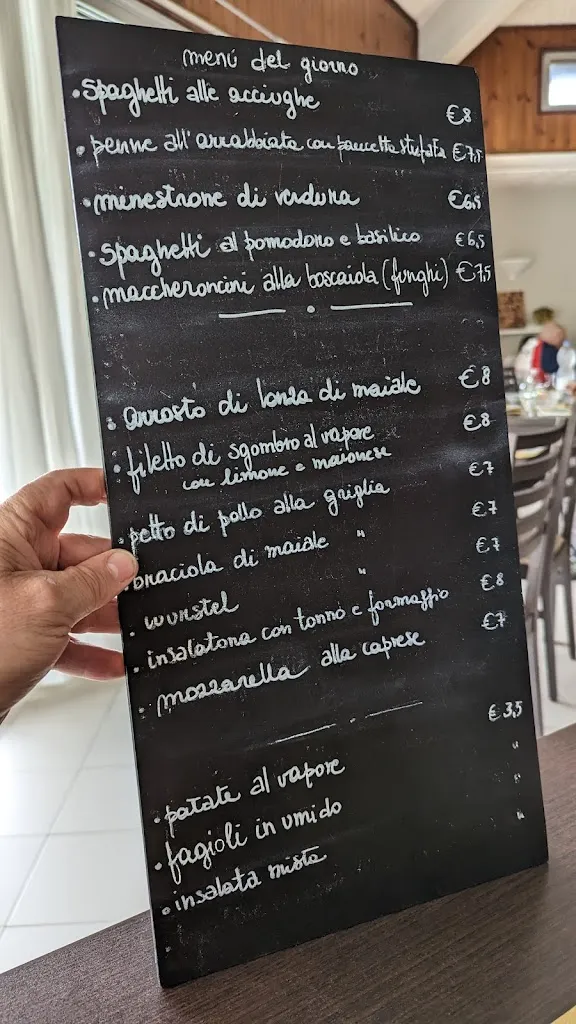 menú del giorno
• spaghetti alle acciughe €8
• penne all'arrabbiata con pancetta stufata €7,5
• minestrone di verdura €6,5
• spaghetti al pomodoro e basilico €6,5
• maccheroncini alla boscaiola (funghi) €7,5
• arrosto di lonza di maiale €8
• filetto di sgombro al vapore €8
con limone e maionese
• petto di pollo alla griglia €7
• braciola di maiale " €7
• wurstel " €7
• insalatona con tonno e formaggio €8
• mozzarella alla caprese €7
• patate al vapore € 3,5
• fagioli in umido "
• insalata mista "
"